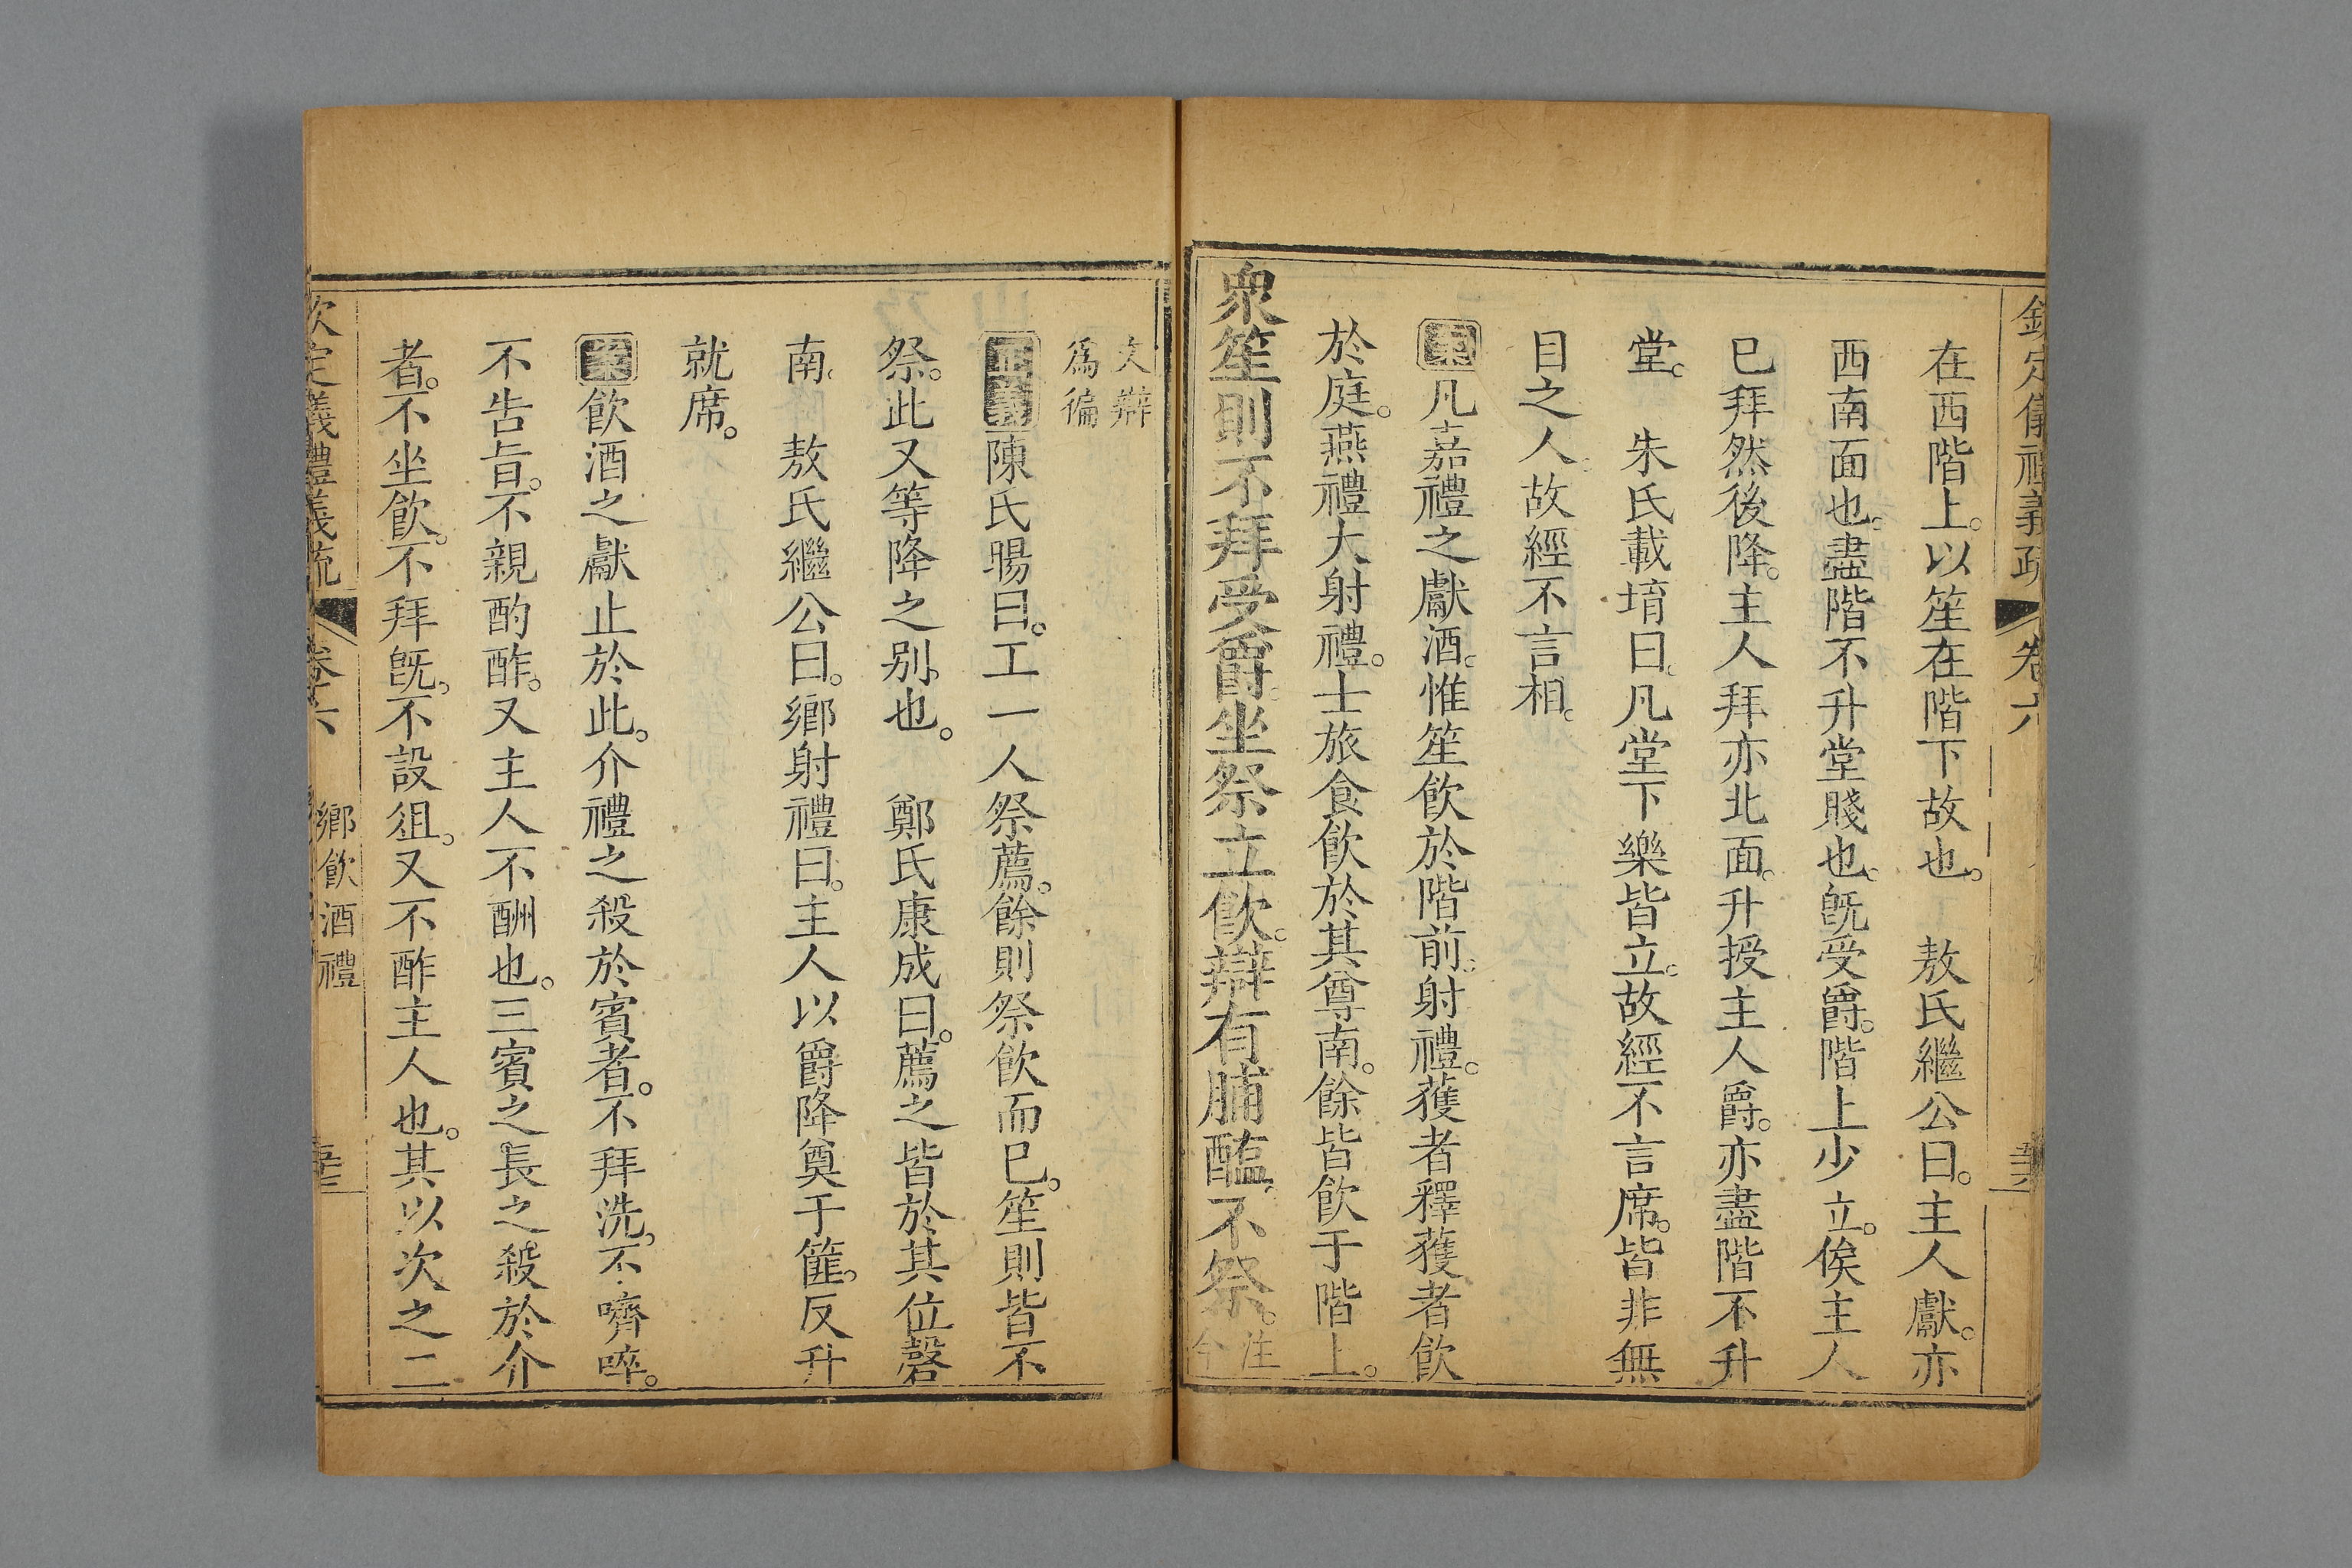 欽定儀禮義疏　卷六
在西階上。以笙在階下故也。　敖氏繼公曰。主人獻。亦
西南面也。盡階不升堂賤也。旣受爵。階上少立。俟主人
已拜然後降。主人拜亦北面。升授主人爵。亦盡階不升
堂。　朱氏載堉曰。凡堂下樂皆立。故經不言席。皆非無
目之人。故經不言相。
案凡嘉禮之獻酒。惟笙飲於階前。射禮。獲者釋獲者飲
於庭。燕禮大射禮。士旅食飲於其尊南。餘皆飲于階上。
衆笙則不拜受爵。坐祭立飲。辯有脯醢。不祭。注今
文辯
爲徧
正義陳氏暘曰。工一人祭薦。餘則祭飲而已。笙則皆不
祭。此又等降之別也。　鄭氏康成曰。薦之皆於其位磬
南。　敖氏繼公曰。鄉射禮曰。主人以爵降奠于篚。反升
就席。
案飲酒之獻止於此。介禮之殺於賓者。不拜洗。不嚌啐。
不告旨。不親酌酢。又主人不酬也。三賓之長之殺於介
者。不坐飲。不拜旣。不設俎。又不酢主人也。其以次之二
欽定儀禮義疏　卷六　鄉飲酒禮